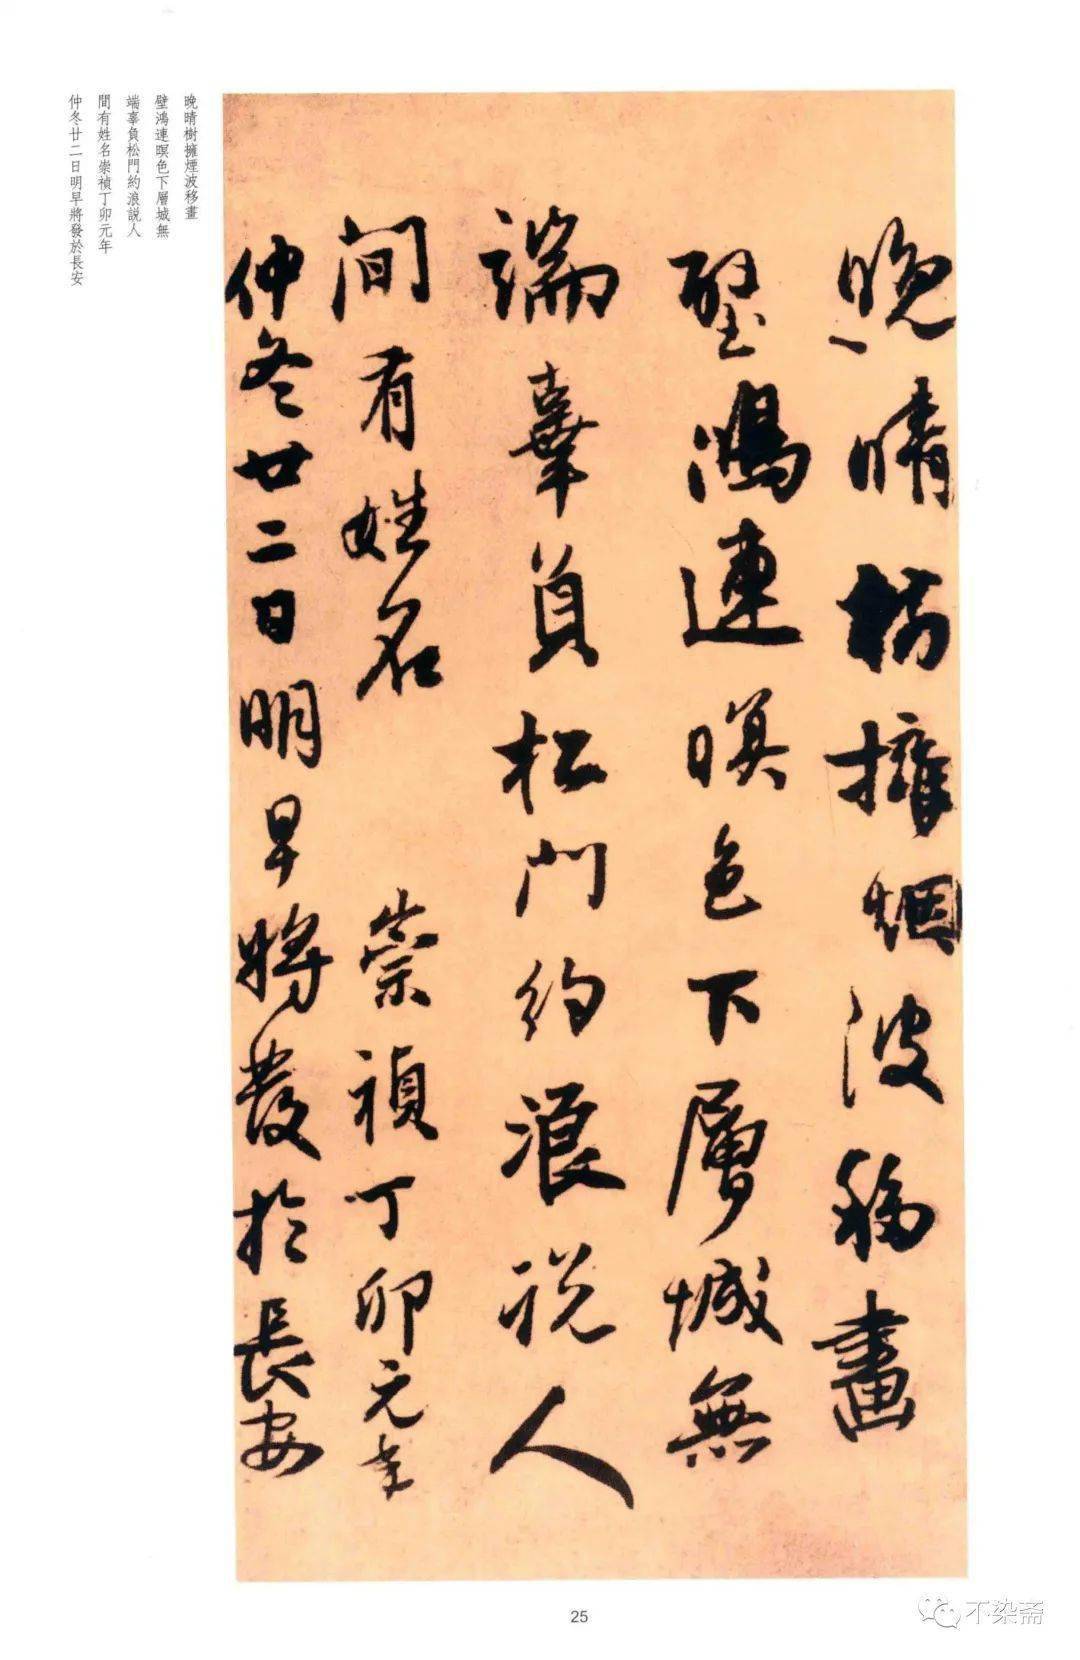 晚晴樹擁煙波移畫
壁鴻連暝色下層城無
端辜負松門約浪説人
間有姓名崇禎丁卯元年
仲冬廿二日明早將發於長安
晚晴樹擁烟波移畫
壁鴻連暝色下層城無
端辜負松門約浪説人
間有姓名 崇禎丁卯元年
仲冬廿二日明早將發於長安
25
不染斋